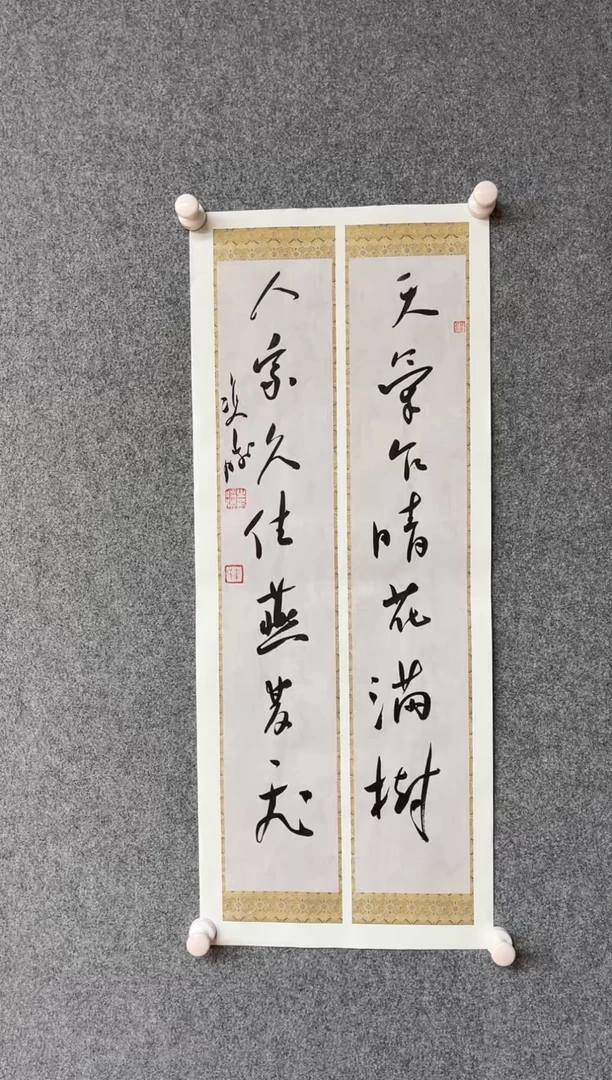 天氣乍晴花滿樹
人家久住燕雙飛